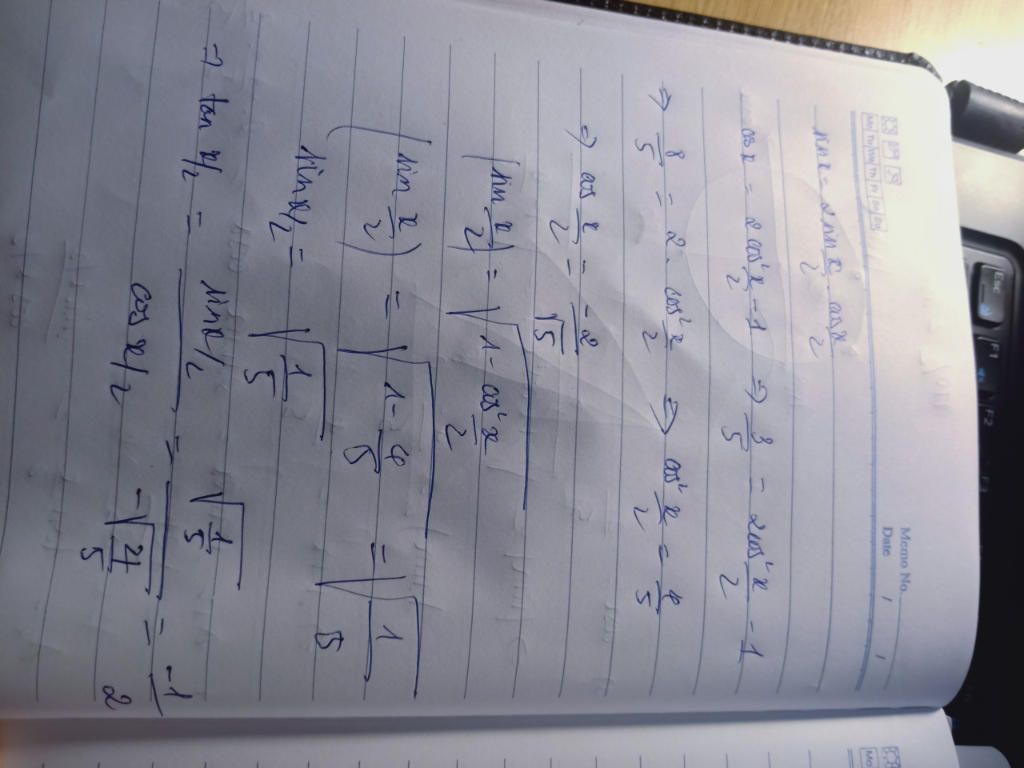 Memo No.
Date / /
Mo Tu We Th Fr Sa Su
sin x = 2 sin x/2 . cos x/2
cos x = 2cos² x/2 - 1 ⇒ 3/5 = 2cos² x/2 - 1
⇒ 8/5 = 2. cos² x/2 ⇒ cos² x/2 = 4/5
⇒ cos x/2 = -2/√5
|sin x/2| = √(1 - cos² x/2)
(sin x/2) = √(1 - 4/5) = √(1/5)
sin x/2 = √(1/5)
⇒ tan x/2 = (sin x/2)/(cos x/2) = √(1/5)/-√(4/5) = -1/2
Esc
F1
F2
Mo